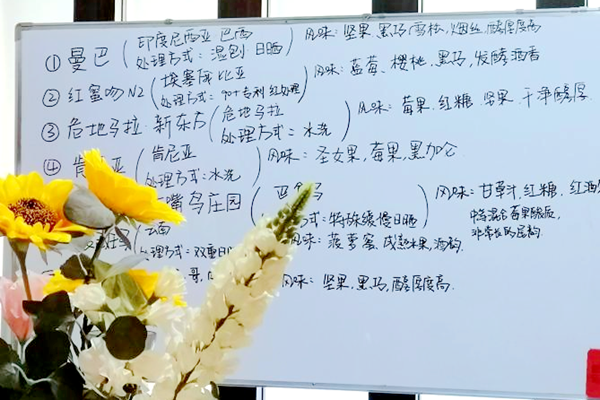 ① 曼巴 (印度尼西亚 巴西 处理方式：湿刨 日晒) 风味：坚果 黑巧 雪松，烟丝，醇厚度高
② 红蜜吻N2 (埃塞俄比亚 处理方式：90+专利 红处理) 风味：蓝莓、樱桃，黑巧，发酵酒香
③ 危地马拉·新东方 (危地马拉 处理方式：水洗) 风味：莓果．红糖．坚果．干净醇厚
④ 肯尼亚 (肯尼亚 处理方式：水洗) 风味：圣女果，莓果，黑加仑
嘴鸟庄园 方式：特殊缓慢日晒) 风味：甘蔗汁，红糖，红酒
中段混合莓果酸质，
云南 处理方式：双重日 风味：菠萝蜜，成熟水果，酒韵
哥， 风味：坚果，黑巧，醇厚度高．